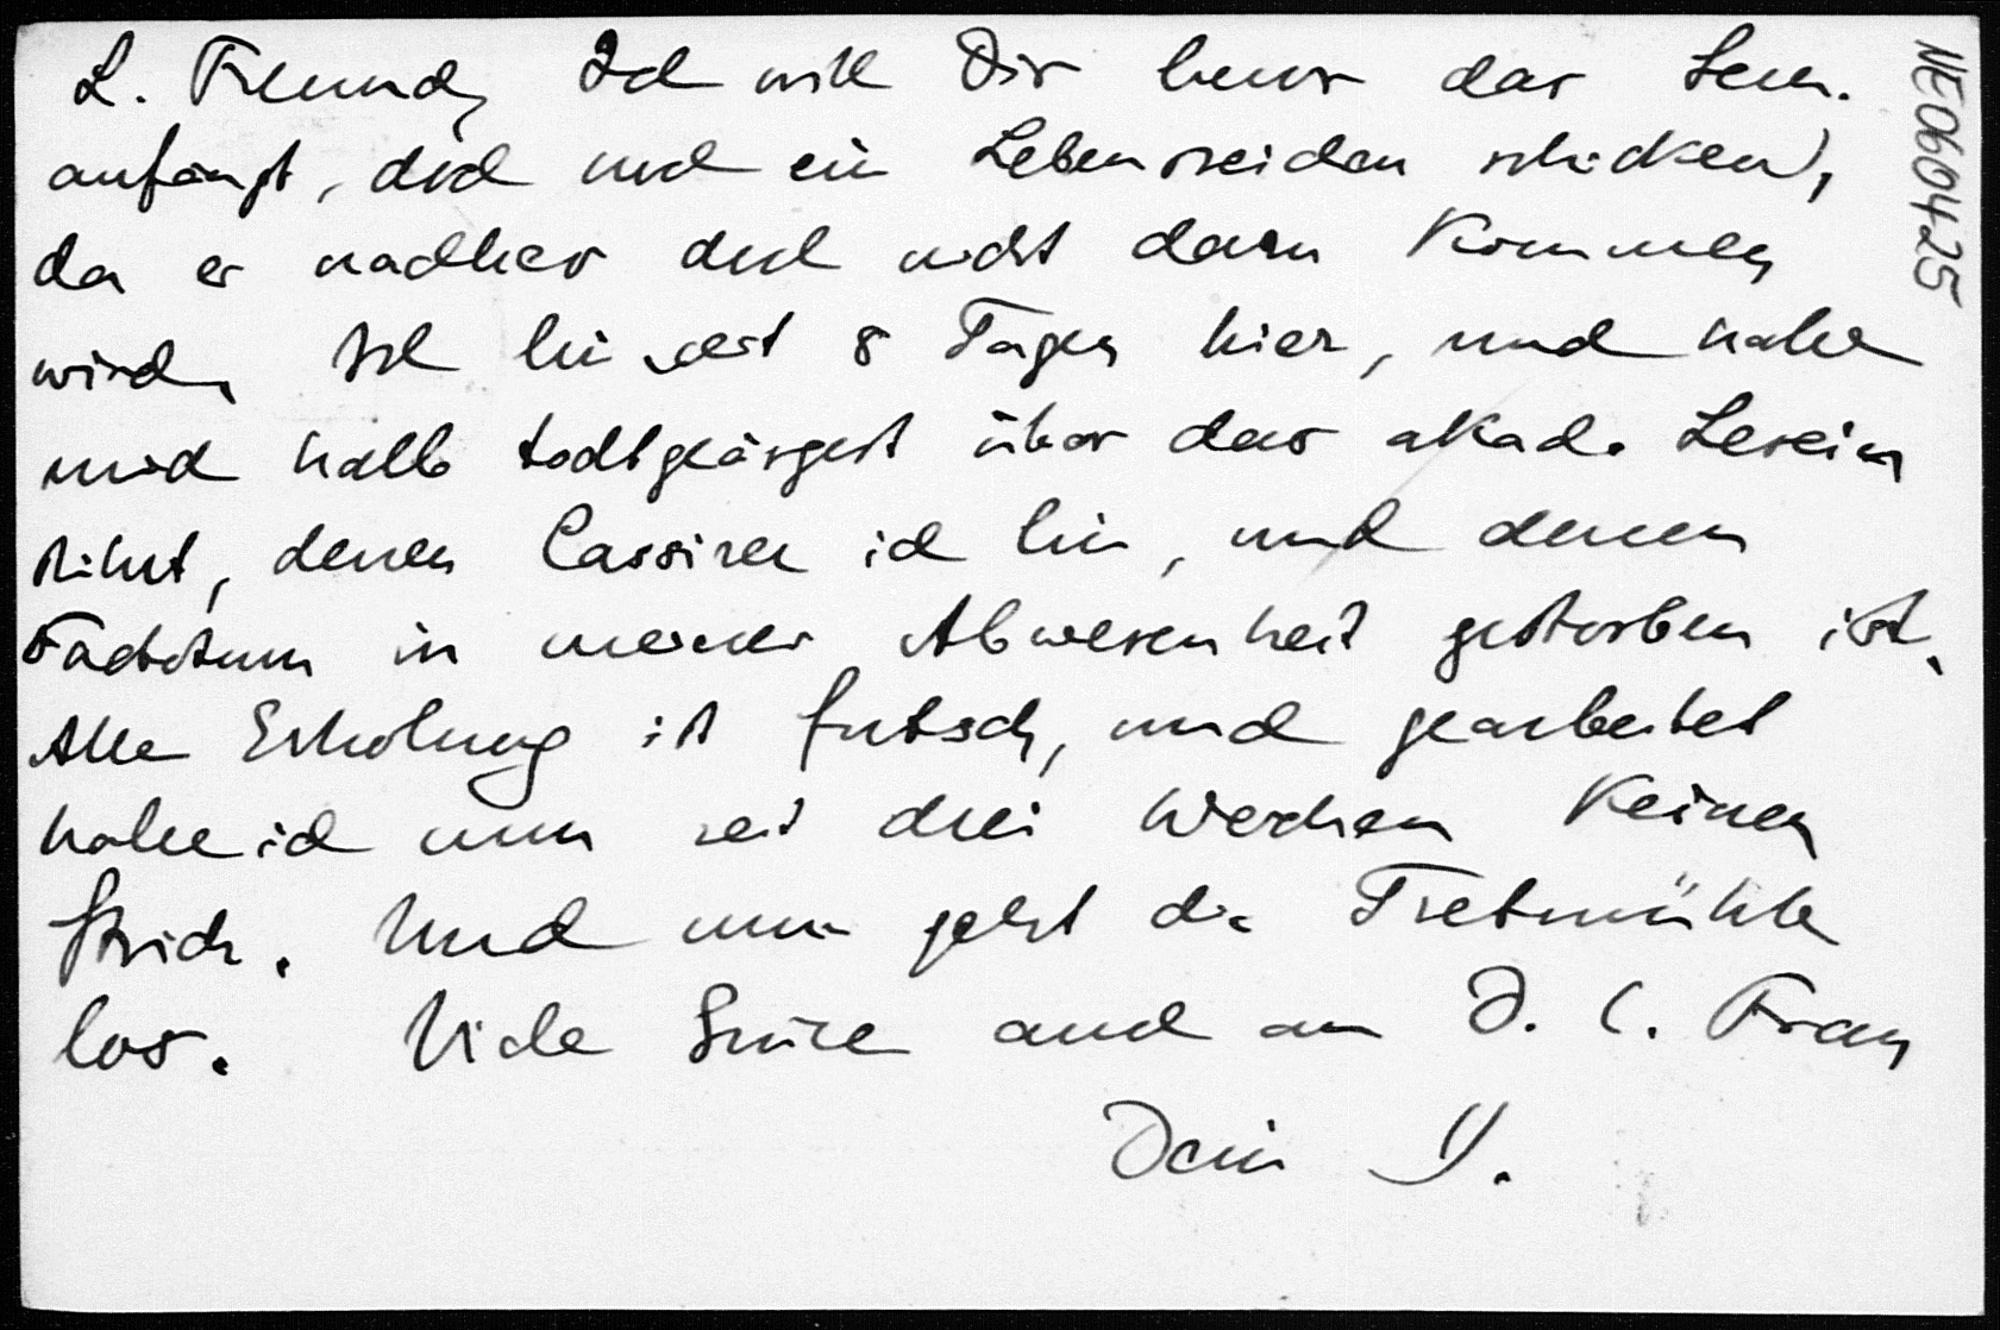 L. Freund, Ich will Dir bevor das Sem.
anfängt, doch noch ein Lebenszeichen schicken,
da es nachher doch nicht dazu kommen
wird. Ich bin seit 8 Tagen hier, und habe
mich halb todtgeärgert über das akad. Leseins
titut, dessen Cassirer ich bin, und dessen
Factotum in meiner Abwesenheit gestorben ist.
Alle Erholung ist futsch, und gearbeitet
habe ich nun seit drei Wochen keinen
Strich. Und nun geht die Tretmühle
los. Viele Grüsse auch an D. l. Frau
Dein
NE060425